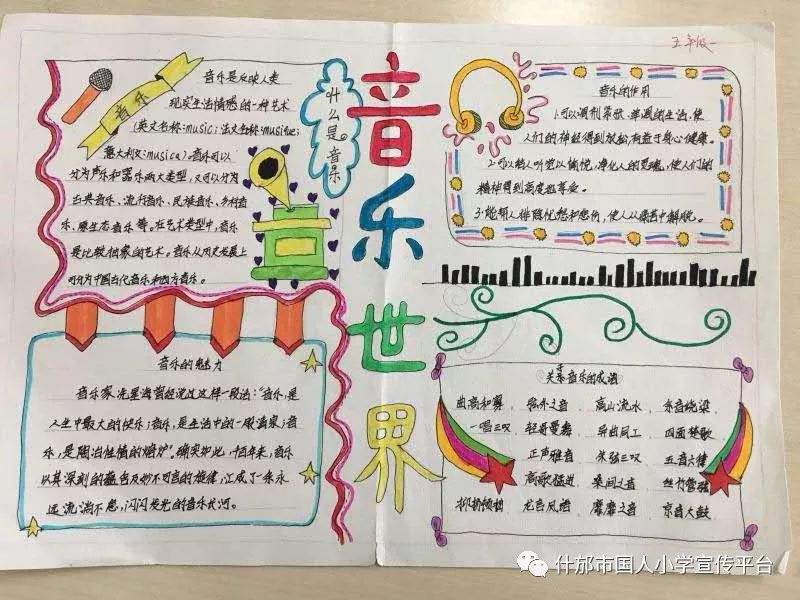 五年级一
音乐
音乐是反映人类
现实生活情感的一种艺术
(英文名称:music;法文名称:musique;
意大利文:musica)。音乐可以
分为声乐和器乐两大类型,又可以分为
古典音乐、流行音乐、民族音乐、乡村音
乐、原生态音乐 等。在艺术类型中,音乐
是比较抽象的艺术。音乐从历史发展上
可分为中国古代音乐和西方音乐。
什么是音乐
音乐世界
音乐的作用
1.可以调剂紧张、单调的生活,使
人们的神经得到放松,有益于身心健康。
2.可以给人听觉以愉悦,净化人的灵魂,使人们的
精神得到高度的享受。
3.能帮人排除忧愁和悲伤,使人从痛苦中解脱。
音乐的魅力
音乐家冼星海曾经说过这样一段话:"音乐,是
人生中最大的快乐;音乐,是生活中的一股清泉;音
乐,是陶冶性情的熔炉"。确实如此,千百年来,音乐
以其深刻的蕴含及妙不可言的旋律,汇成了一条永
远流淌不息,闪闪发光的音乐长河。
关于音乐的成语
曲高和寡 弦外之音 高山流水 余音绕梁
一唱三叹 轻歌曼舞 异曲同工 四面楚歌
正声雅音 朱弦三叹 五音六律
高歌猛进 桑间之音 丝竹管弦
抑扬顿挫 龙言凤语 靡靡之音 京音大鼓
什邡市国人小学宣传平台